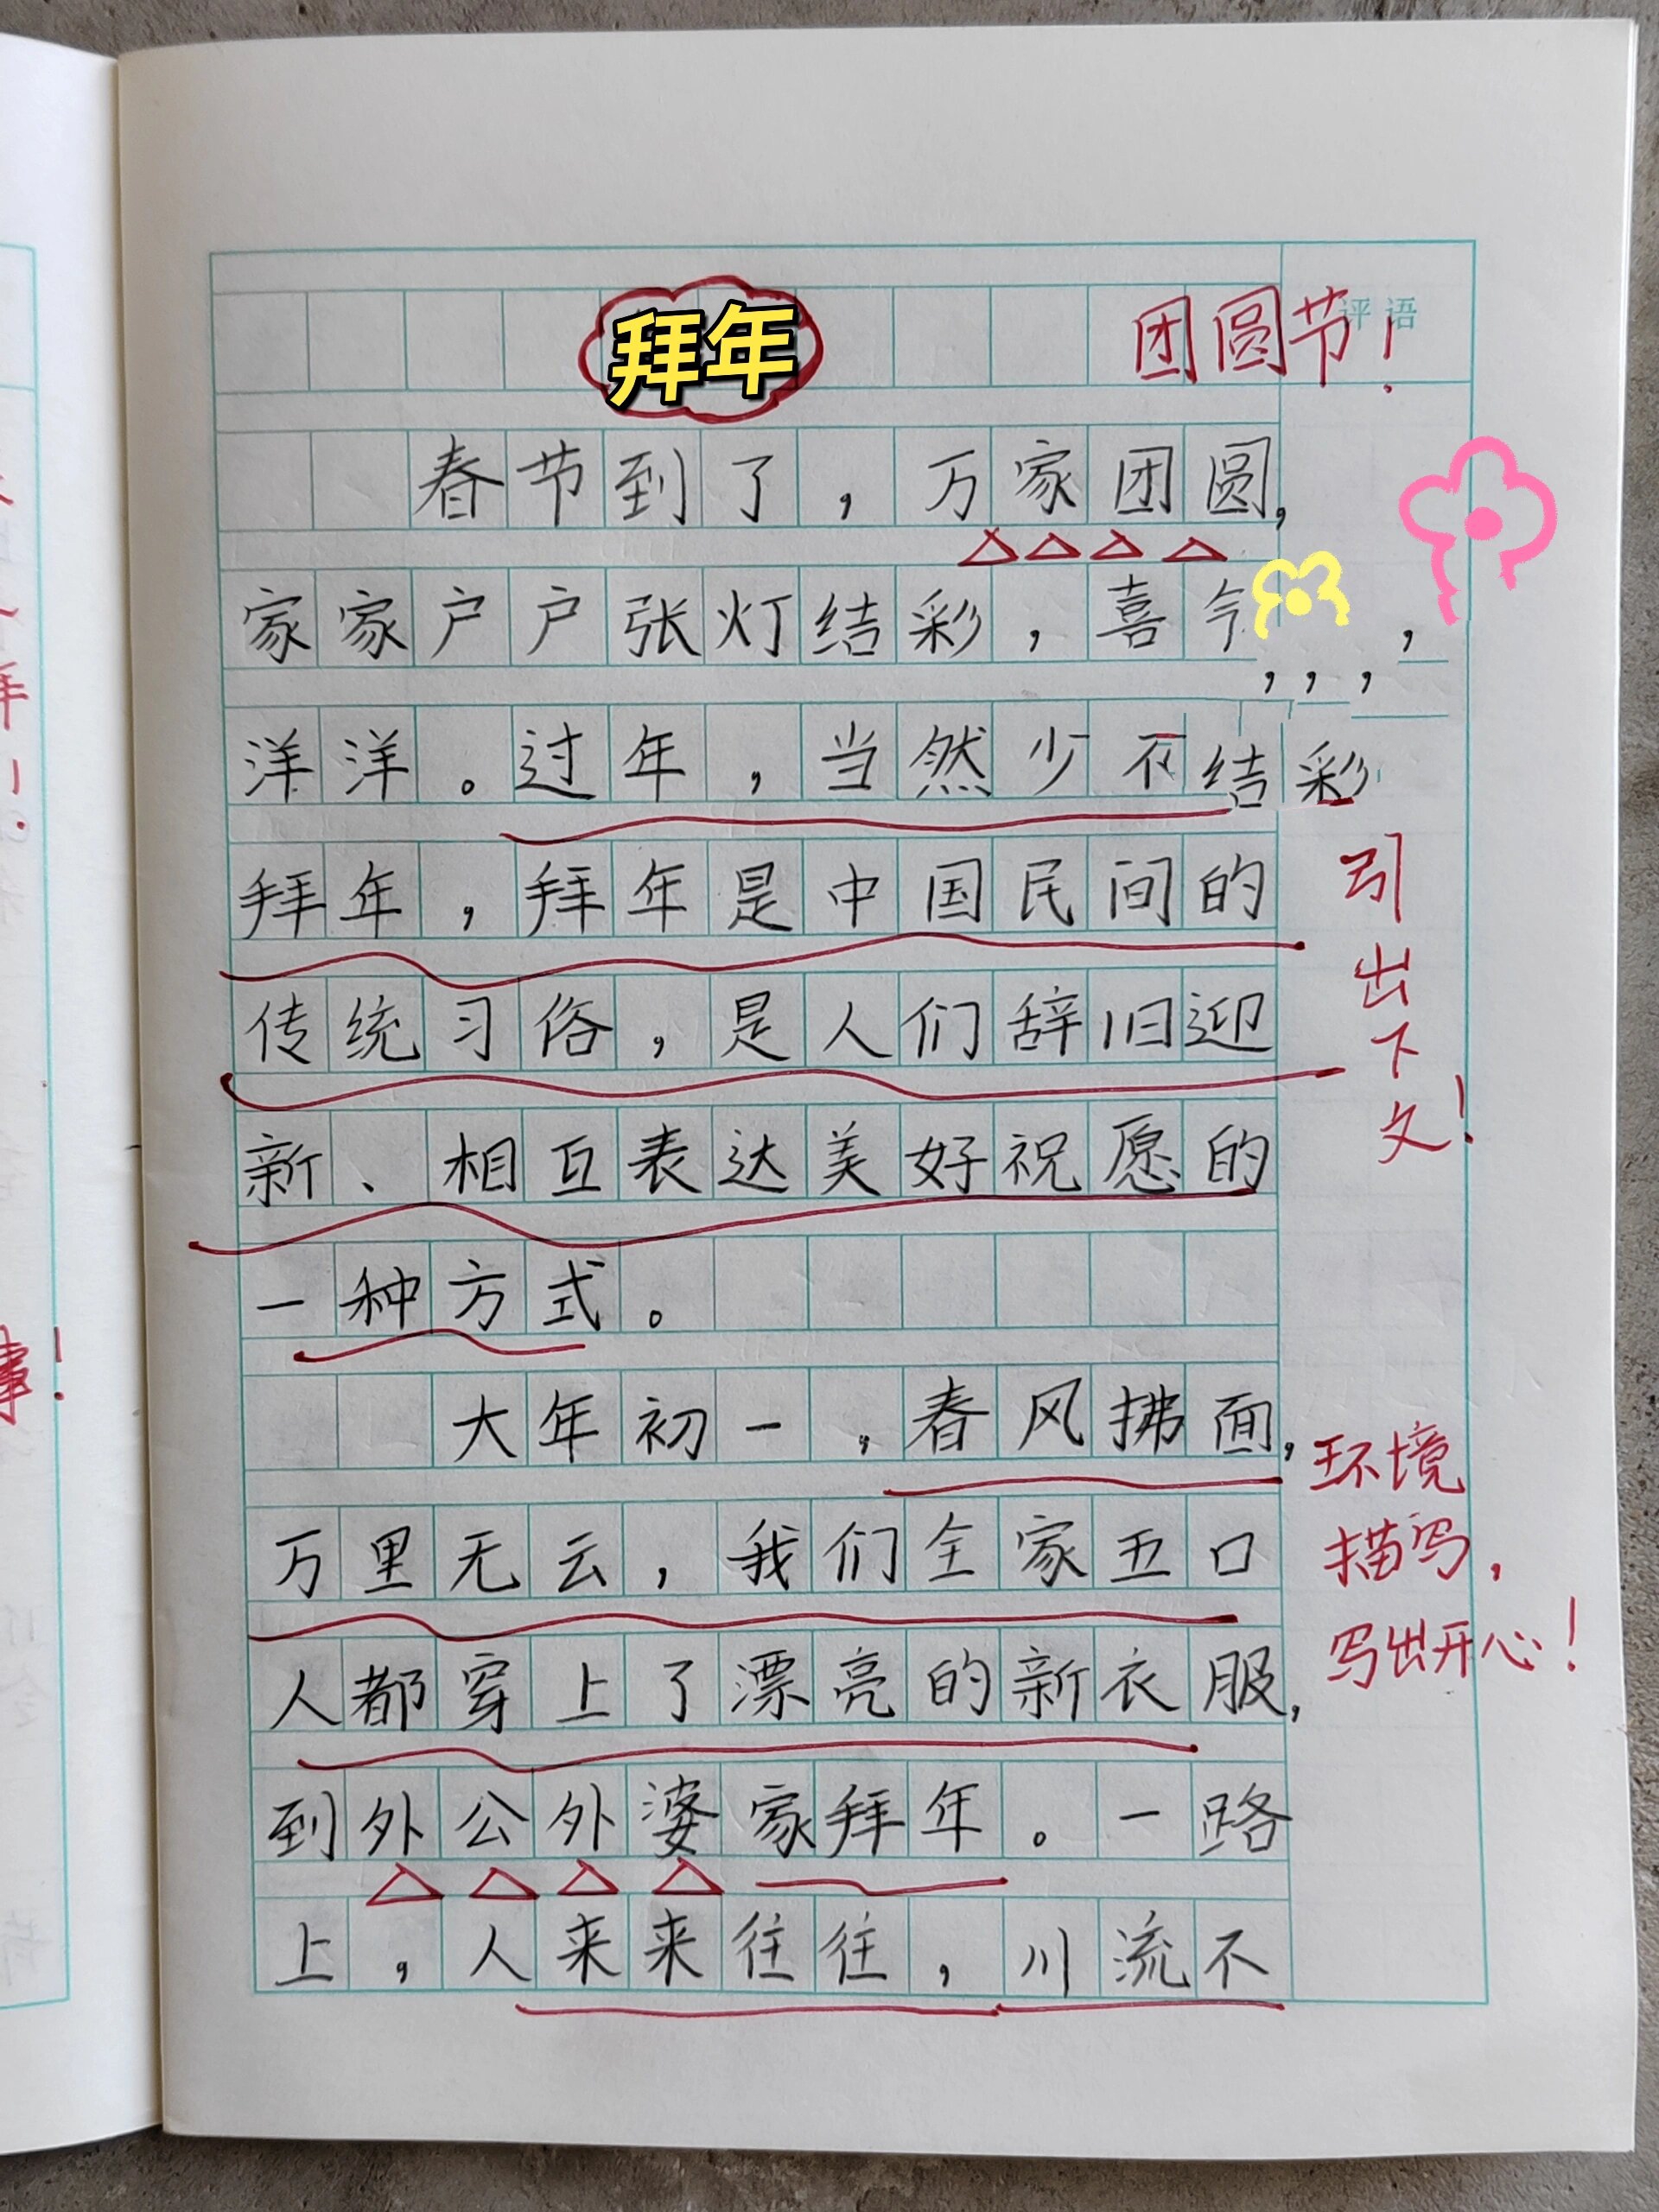 拜年
团圆节！
评语
春节到了，万家团圆，
家家户户张灯结彩，喜气
，，，，
洋洋。过年，当然少不结彩
拜年，拜年是中国民间的
传统习俗，是人们辞旧迎
新、相互表达美好祝愿的
一种方式。
引出下文！
大年初一，春风拂面，
万里无云，我们全家五口
人都穿上了漂亮的新衣服，
到外公外婆家拜年。一路
上，人来来往往，川流不
环境
描写，
写出开心！
拜！
事！